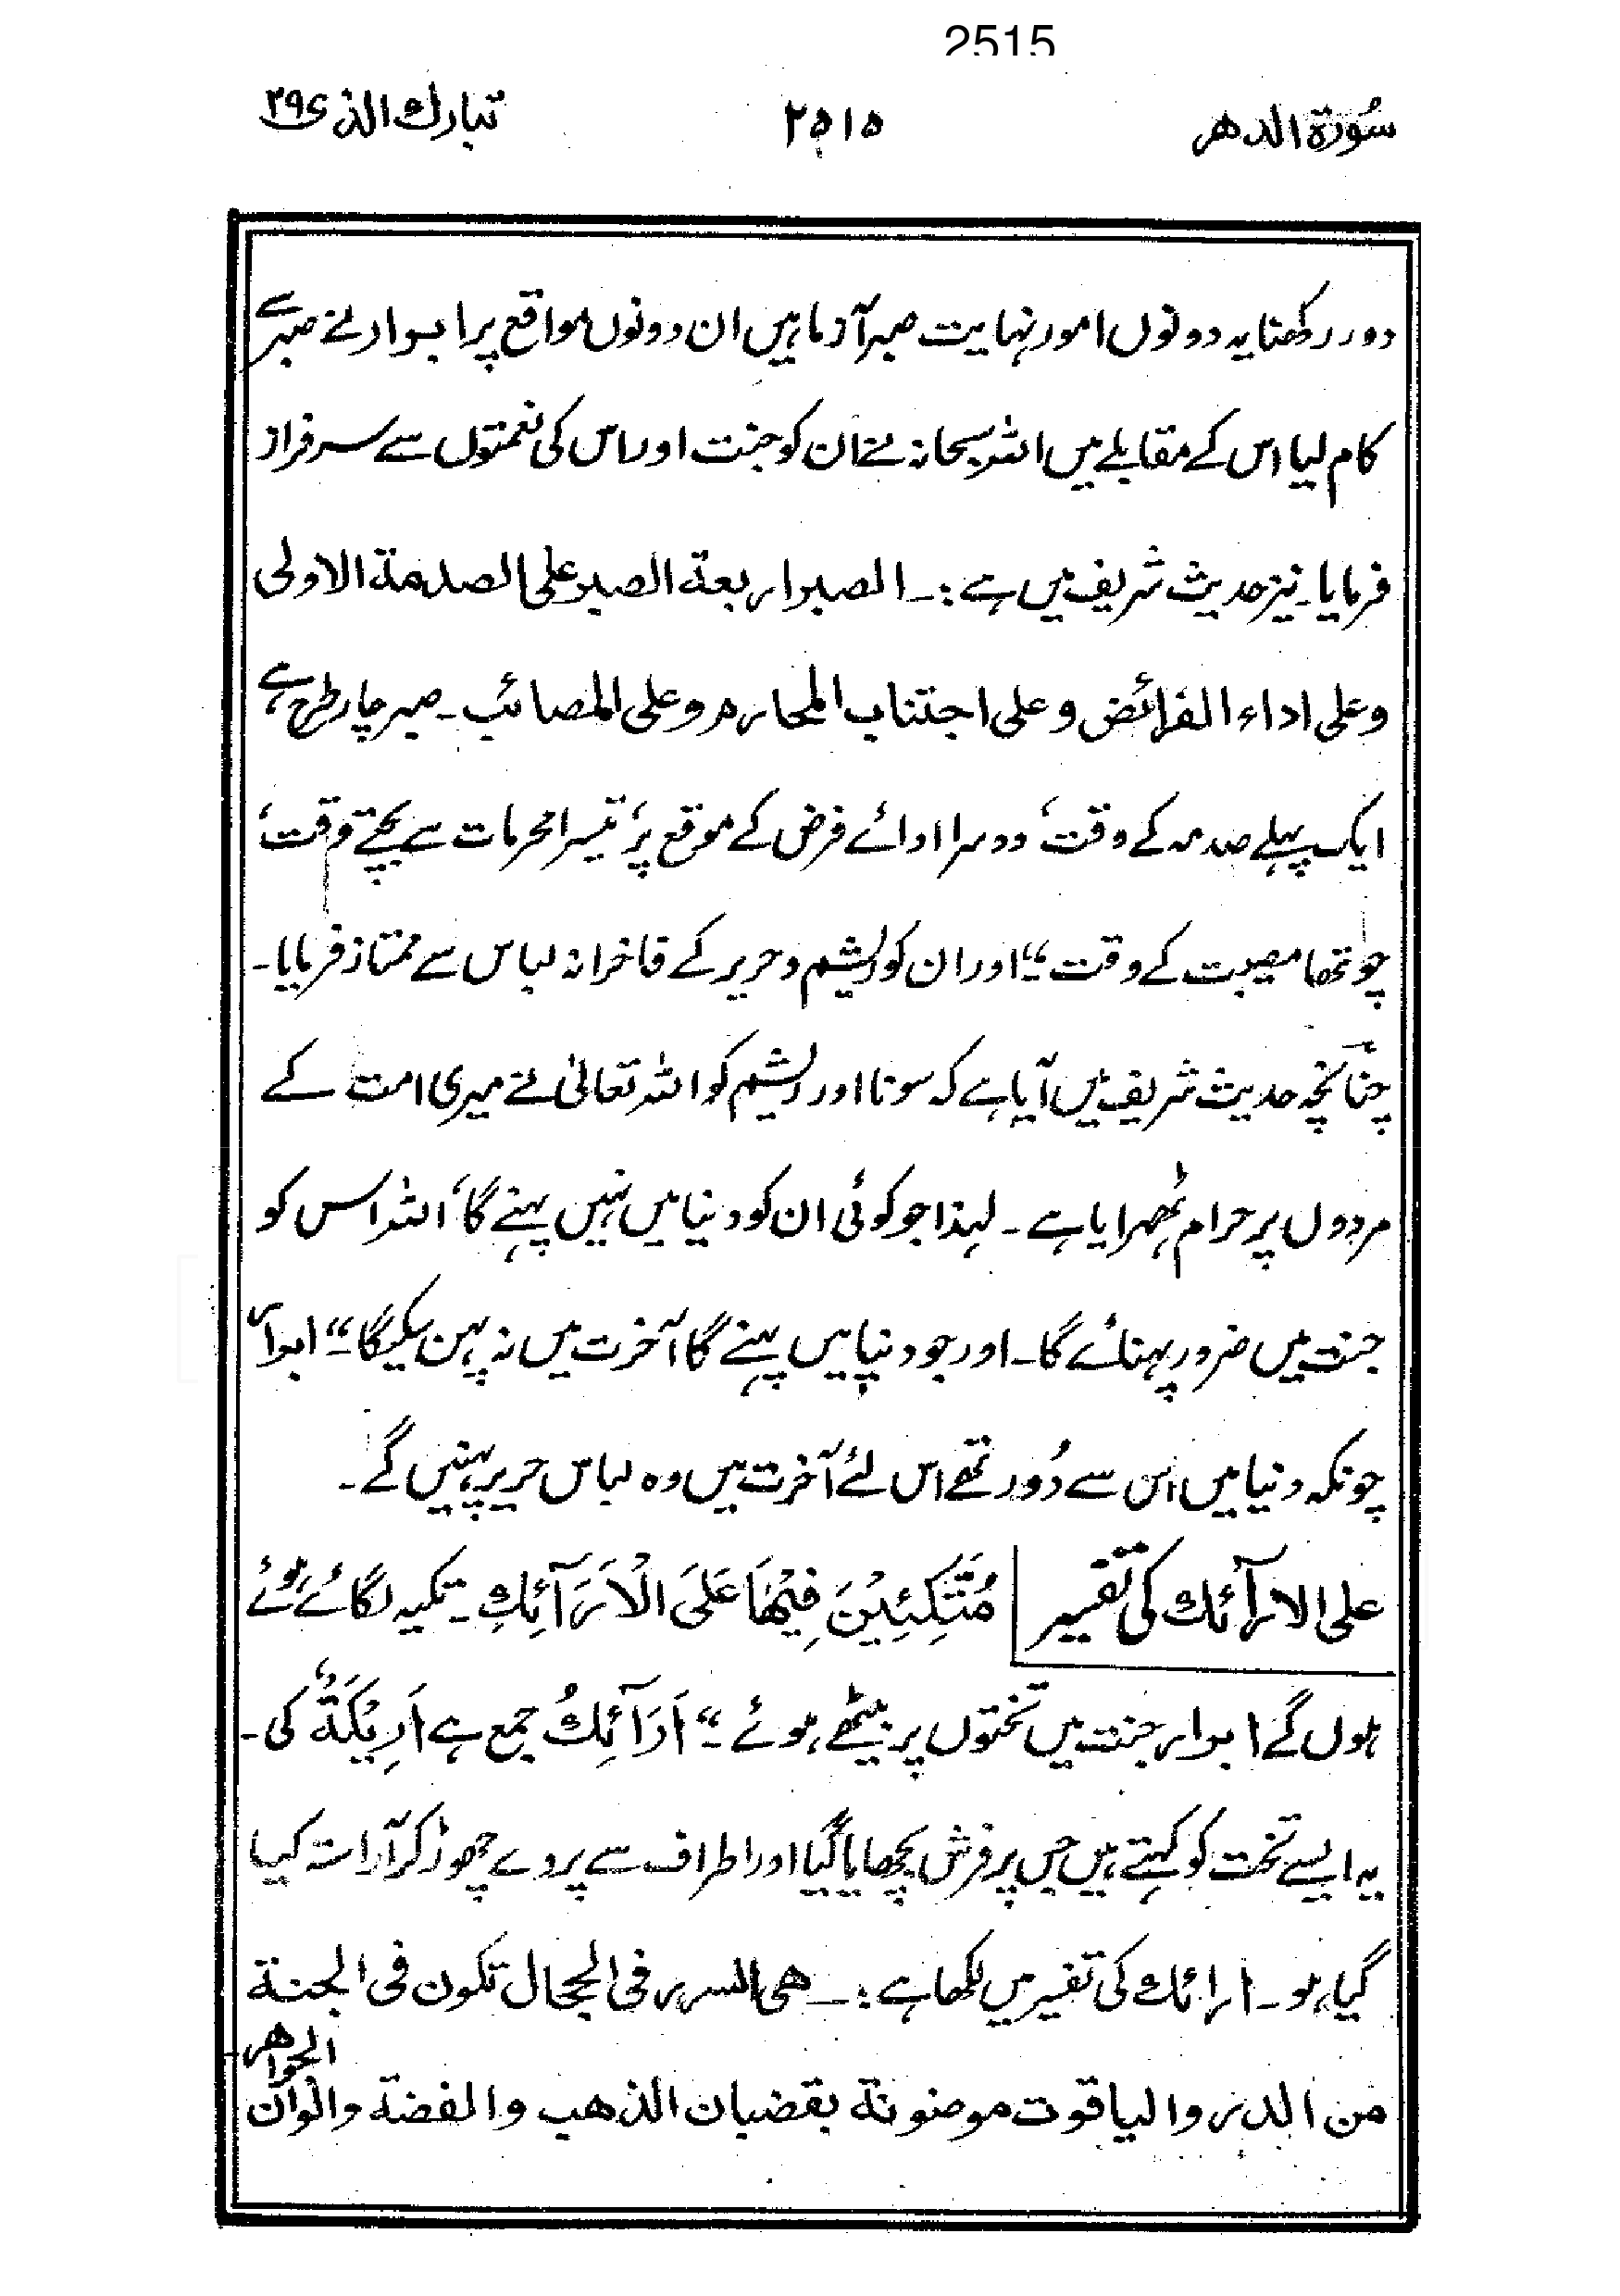 2515
سُورۃ الدھر ۲۵۱۵ تبارك الذی ۲۹
دور رکھنا یہ دونوں امور نہایت صبر آزما ہیں ان دونوں مواقع پر ابرار نے صبر سے
کام لیا اس کے مقابلے میں اللہ سبحانہ نے ان کو جنت اور اس کی نعمتوں سے سرفراز
فرمایا۔ نیز حدیث شریف میں ہے :۔ الصبر اربعة الصبر علی الصدمة الاولی
وعلی اداء الفرائض وعلی اجتناب المحارم وعلی المصائب۔ صبر چار طرح ہے
ایک پہلے صدمہ کے وقت، دوسرا ادائے فرض کے موقع پر، تیسرا محرمات سے بچتے وقت،
چوتھا مصیبت کے وقت"۔ اور ان کو ریشم و حریر کے فاخرانہ لباس سے ممتاز فرمایا۔
چنانچہ حدیث شریف میں آیا ہے کہ سونا اور ریشم کو اللہ تعالیٰ نے میری امت کے
مردوں پر حرام ٹھہرایا ہے۔ لہذا جو کوئی ان کو دنیا میں نہیں پہنے گا، اللہ اس کو
جنت میں ضرور پہنائے گا۔ اور جو دنیا میں پہنے گا آخرت میں نہ پہن سکیگا"۔ ابرار
چونکہ دنیا میں اس سے دُور تھے اس لئے آخرت میں وہ لباس حریر پہنیں گے۔
علی الارآئك کی تفسیر | مُتَّكِئِيْنَ فِيْهَا عَلَى الْاَرَآئِكِ۔ تکیہ لگائے ہوئے
ہوں گے ابرار جنت میں تختوں پر بیٹھے ہوئے"۔ اَرَآئِكُ جمع ہے اَرِيْكَةٌ کی۔
یہ ایسے تخت کو کہتے ہیں جس پر فرش بچھایا گیا اور اطراف سے پردے چھوڑ کر آراستہ کیا
گیا ہو۔ ارائك کی تفسیر میں لکھا ہے :۔ ھی السرر فی الحجال تکون فی الجنة
من الدر والیاقوت موضونة بقضبان الذھب والفضة والوان الجواھر